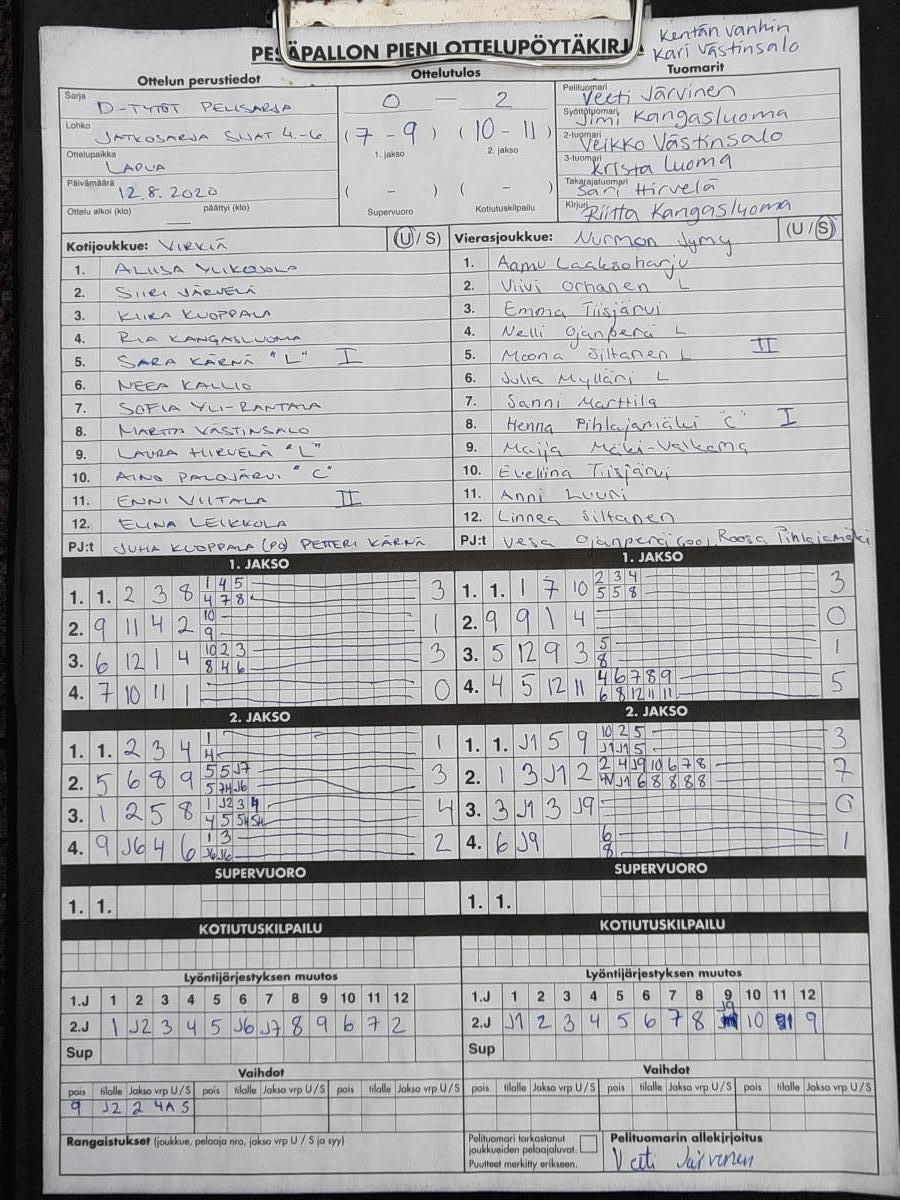 Kentän vanhin
Kari Västinsalo
PESÄPALLON PIENI OTTELUPÖYTÄKIRJA
Ottelun perustiedot
Ottelutulos
Tuomarit
Sarja D-TYTÖT PELISARJA
Lohko JATKOSARJA SIJAT 4.-6.
Ottelupaikka LAPUA
Päivämäärä 12.8.2020
Ottelu alkoi (klo) päättyi (klo)
0 — 2
(7 - 9) (10 - 11)
1. jakso 2. jakso
( - ) ( - )
Supervuoro Kotiutuskilpailu
Pelituomari Veeti Järvinen
Syöttötuomari Jimi Kangasluoma
2-tuomari Veikko Västinsalo
3-tuomari Krista Luoma
Takarajatuomari Sari Hirvelä
Kirjuri Riitta Kangasluoma
Kotijoukkue: VIRKIÄ (U / S)
1. ALIISA YLIKOJOLA
2. SIIRI JÄRVELÄ
3. KIIRA KUOPPALA
4. RIA KANGASLUOMA
5. SARA KÄRNÄ "L" I
6. NEEA KALLIO
7. SOFIA YLI-RANTALA
8. MARTTA VÄSTINSALO
9. LAURA HIRVELÄ "L"
10. AINO PALOJÄRVI "C"
11. ENNI VIITALA II
12. ELINA LEIKKOLA
PJ:t JUHA KUOPPALA (PJ) PETTERI KÄRNÄ
Vierasjoukkue: Nurmon Jymy (U / S)
1. Aamu Laaksoharju
2. Viivi Orhanen L
3. Emma Tiisjärvi
4. Nelli Ojanperä L
5. Moona Siltanen L II
6. Julia Mylläri L
7. Sanni Marttila
8. Henna Pihlajamäki "C" I
9. Maija Mäki-Valkama
10. Eveliina Tiisjärvi
11. Anni Luuri
12. Linnea Siltanen
PJ:t Vesa Ojanperä Roosa Pihlajamäki
1. JAKSO
1. 1. 2 3 8 1 4 5 3
4 7 8
2. 9 11 4 2 10 1
9
3. 6 12 1 4 10 2 3 3
8 4 6
4. 7 10 11 1 0
1. JAKSO
1. 1. 1 7 10 2 3 4 3
5 5 8
2. 9 9 1 4 0
3. 5 12 9 3 5 1
8
4. 4 5 12 11 4 6 7 8 9 5
6 8 12 11 11
2. JAKSO
1. 1. 2 3 4 1 1
4
2. 5 6 8 9 5 5 J7 3
5 7H J6
3. 1 2 5 8 1 J2 3 4 4
4 5 5H 5H
4. 9 J6 4 6 1 3 2
J6 J6
2. JAKSO
1. 1. J1 5 9 10 2 5 3
J1 J1 5
2. 1 3 J1 2 2 4 J9 10 6 7 8 7
4V J1 6 8 8 8 8
3. 3 J1 3 J9 0
4. 6 J9 6 1
8
SUPERVUORO
1. 1.
SUPERVUORO
1. 1.
KOTIUTUSKILPAILU
KOTIUTUSKILPAILU
Lyöntijärjestyksen muutos
1.J 1 2 3 4 5 6 7 8 9 10 11 12
2.J 1 J2 3 4 5 J6 J7 8 9 6 7 2
Sup
Lyöntijärjestyksen muutos
1.J 1 2 3 4 5 6 7 8 9 10 11 12
2.J J1 2 3 4 5 6 7 8 J9 10 11 9
Sup
Vaihdot
pois tilalle Jakso vrp U / S pois tilalle Jakso vrp U / S pois tilalle Jakso vrp U / S
9 J2 2 4A S
Vaihdot
pois tilalle Jakso vrp U / S pois tilalle Jakso vrp U / S pois tilalle Jakso vrp U / S
Rangaistukset (joukkue, pelaaja nro, jakso vrp U / S ja syy)
Pelituomari tarkastanut
joukkueiden pelaajaluvat.
Puutteet merkitty erikseen.
Pelituomarin allekirjoitus
Veeti Järvinen